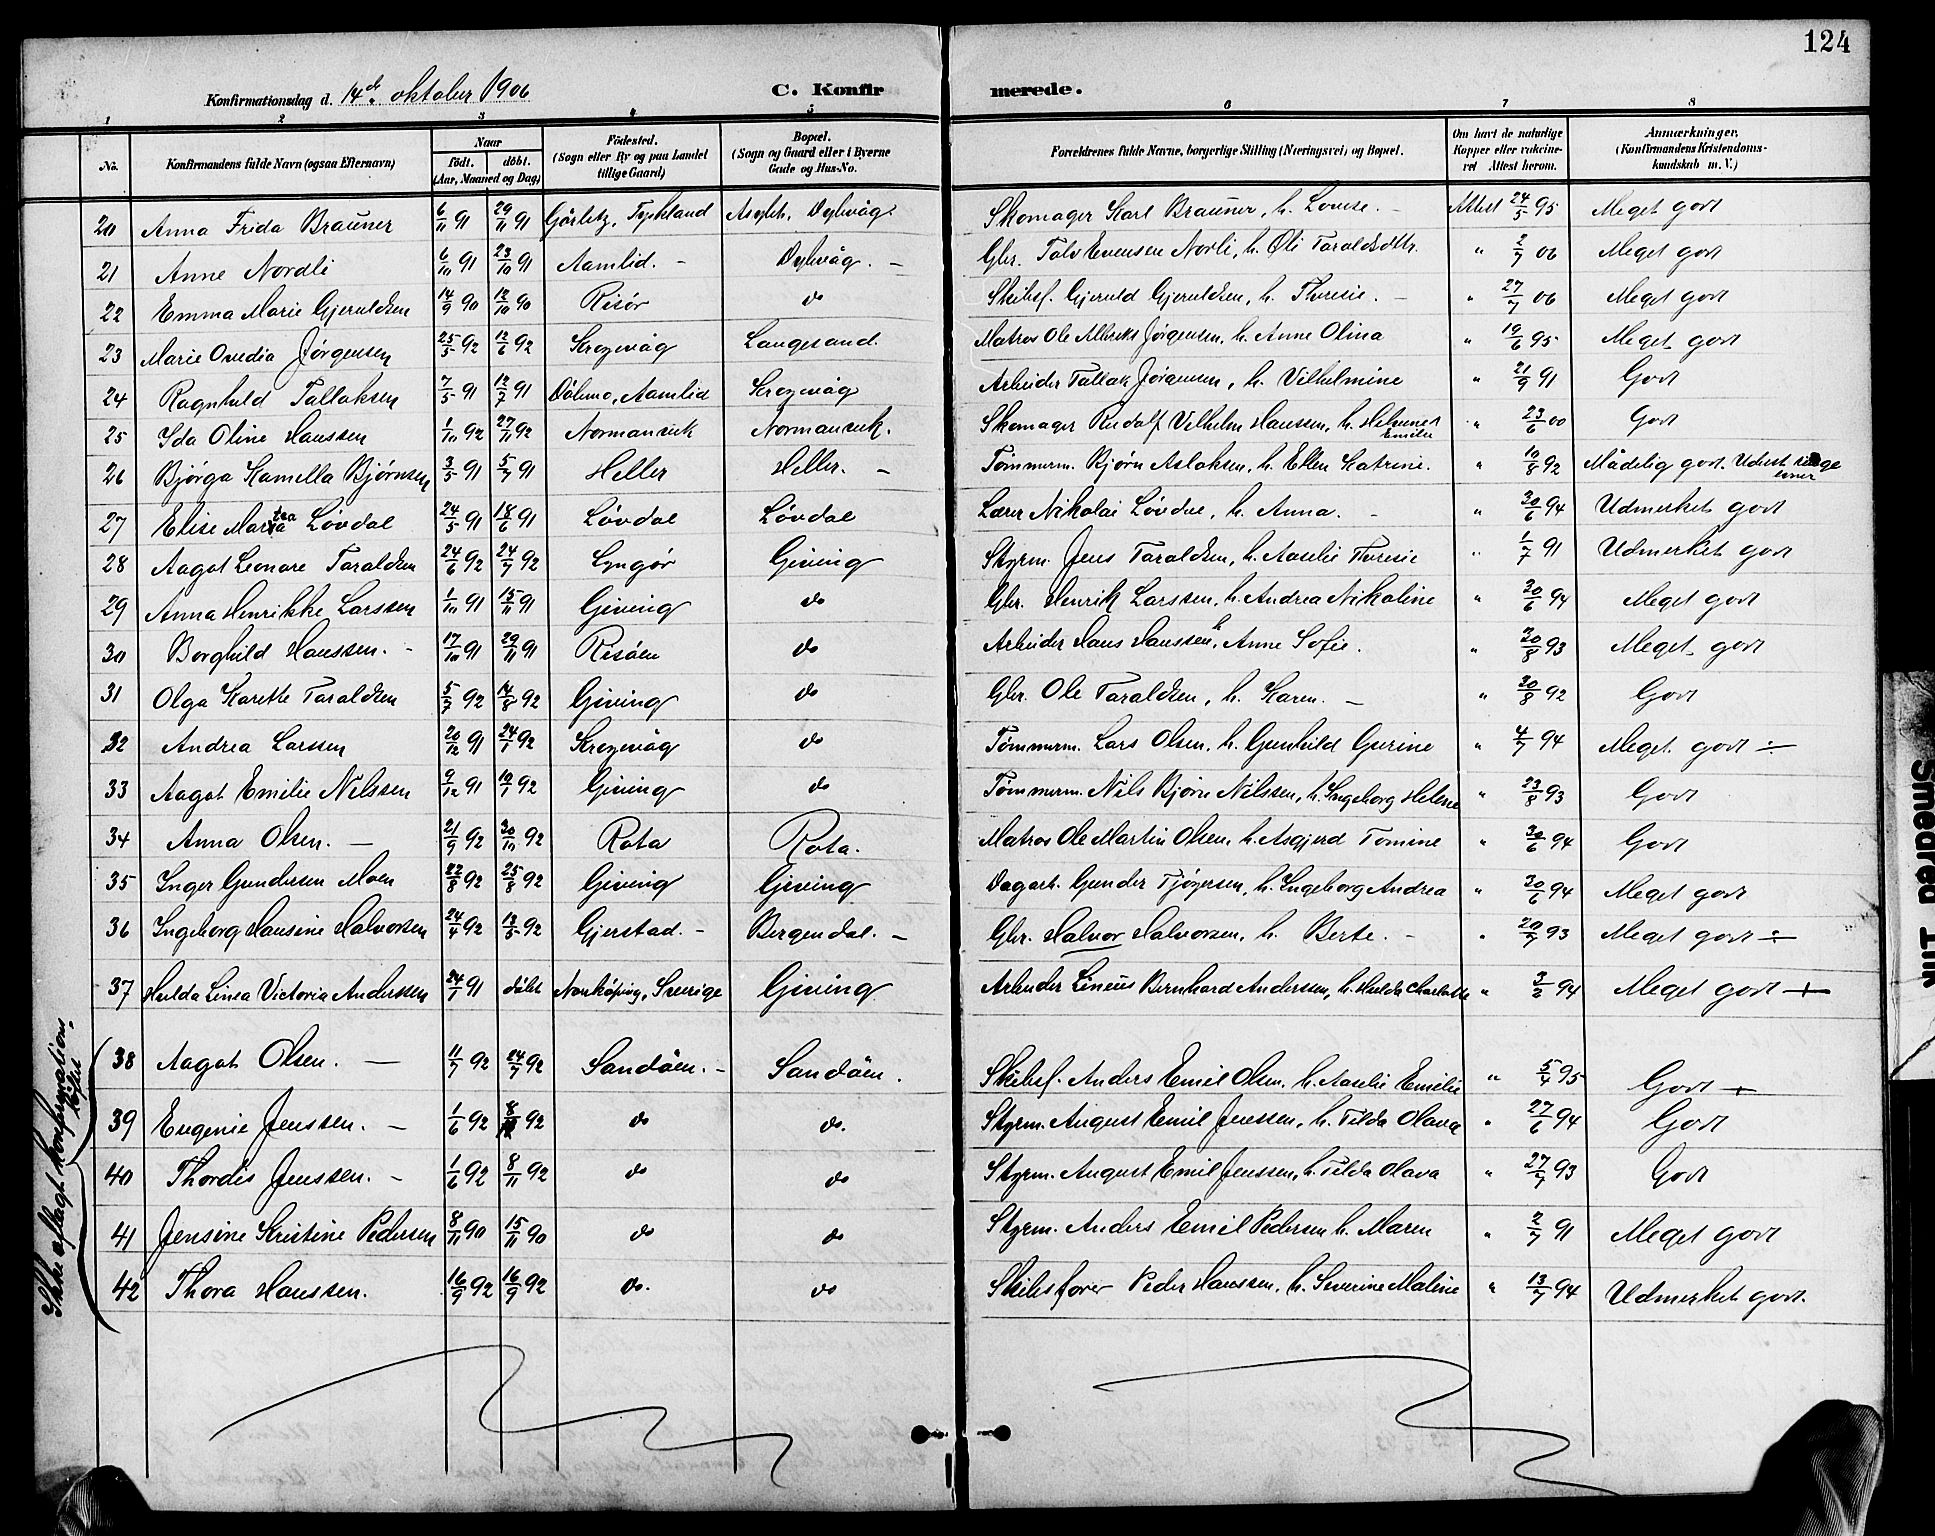 124
Konfirmationsdag d. 14de oktober 1906 C. Konfirmerede.
1 2 3 4 5 6 7 8
No. Konfirmandens fulde Navn (ogsaa Efternavn) Naar født. døbt. (Aar, Maaned og Dag) Födested. (Sogn eller By og paa Landet tillige Gaard) Bopæl. (Sogn og Gaard eller i Byerne Gade og Hus-No. Forældrenes fulde Navne, borgerlige Stilling (Næringsvei) og Bopæl. Om havt de naturlige Kopper eller vakcineret Attest herom. Anmærkninger. (Konfirmandens Kristendomskundskab m. V.)
20 Anna Frida Brauner 6/11 91 29/11 91 Görlitz, Tyskland Dybvåg. Skomager Karl Brauner, h. Lovise. - Attest 24/5 95 Meget godt
21 Anne Nordli 6/10 91 23/10 91 Aamlid. - Dybvåg. - Gbr. Talv Evensen Norli, h. Oli Taraldsdtr. " 2/7 06 Meget godt
22 Emma Marie Gjeruldsen 14/9 90 12/10 90 Risör do Skibsf. Gjeruld Gjeruldsen, h. Theresie. - " 27/7 06 Meget godt
23 Marie Ovedia Jørgensen 25/5 92 12/6 92 Krogevåg Langesand. Matros Ole Albreks Jørgensen, h. Anne Olina " 19/6 95 Meget godt
24 Ragnhild Tallaksen 7/5 91 12/7 91 Dölemo, Aamlid Krogevåg Arbeider Tallak Jørgensen, h. Vilhelmine " 21/9 91 Godt
25 Ida Oline Hanssen 1/10 92 27/11 92 Normansvik Normansvik. Skomager Rudolf Vilhelm Hanssen, h. Emilie " 23/6 00 Godt
26 Bjørga Kamella Bjørnsen 3/5 91 5/7 91 Heller Heller. - Tømmerm. Bjørn Aslaksen, h. Ellen Katrine. " 10/8 92 Mådelig godt. Udest ringe evner
27 Elise Martea Løvdal 24/5 91 18/6 91 Løvdal Løvdal Lærer Nikolai Løvdal, h. Anna. - " 30/6 94 Udmerket godt
28 Aagot Leonore Taraldsen 24/6 92 24/7 92 Lyngør Giving Styrm. Jens Taraldsen, h. Aaselie Theresie " 1/7 91 Udmerket godt
29 Anna Henrikke Larssen 1/10 91 15/11 91 Giving do Gbr. Henrik Larssen, h. Andrea Nikoline " 30/6 94 Meget godt
30 Borghild Hanssen. - 17/10 91 29/11 91 Risöen do Arbeider Hans Hanssen, h. Anne Sofie. " 30/8 93 Meget godt
31 Olga Karethe Taraldsen 5/7 92 14/8 92 Giving do Gbr. Ole Taraldsen, h. Karen. - " 30/8 92 Godt
32 Andrea Larssen 20/12 91 24/1 92 Krogevåg do Tømmerm. Lars Olsen, h. Gunhild Gurine " 4/7 94 Meget godt ÷
33 Aagot Emilie Nilssen 9/12 91 10/1 92 Giving do Tømmerm. Nils Bjørn Nilssen, h. Ingeborg Helene " 23/8 93 Godt
34 Anna Olsen. - 21/9 92 30/10 92 Rota Rota. Matros Ole Martin Olsen, h. Asgjerd Tomine " 30/6 94 Godt
35 Inger Gundersen Moen 22/8 92 25/8 92 Giving Giving Dagarb. Gunder Tjøgersen, h. Ingeborg Andrea " 30/6 94 Meget godt
36 Ingeborg Hansine Halvorsen 24/4 92 13/5 92 Gjerstad. - Bergendal. - Gbr. Halvor Halvorsen, h. Berte. - " 20/7 93 Meget godt ÷
37 Hulda Linea Victoria Anderssen 24/1 91 døbt Norrköping, Sverige Giving Arbeider Lineus Bernhard Anderssen, h. Hulda Charlotte " 3/2 94 Meget godt +
Ikke aflagt konfirmationsløftet
38 Aagot Olsen. - 11/7 92 24/7 92 Sandöen. - Sandöen. Skibsf. Anders Emil Olsen, h. Aaselie Emilie " 5/4 95 Godt +
39 Eugenie Jenssen. - 1/6 92 8/11 92 do do. Styrm. August Emil Jenssen, h. Tilda Olava " 27/6 94 Godt
40 Thordis Jenssen. - 1/6 92 8/11 92 do do Styrm. August Emil Jenssen, h. Tilda Olava " 27/7 93 Godt
41 Jensine Kristine Pedersen 8/11 90 15/11 90 do do Styrm. Anders Emil Pedersen h. Maren " 2/7 91 Meget godt
42 Thora Hanssen. 16/9 92 16/9 92 do. do Skibsfører Peder Hanssen, h. Severine Maline " 13/7 94 Udmerket godt.
Smeared Ink